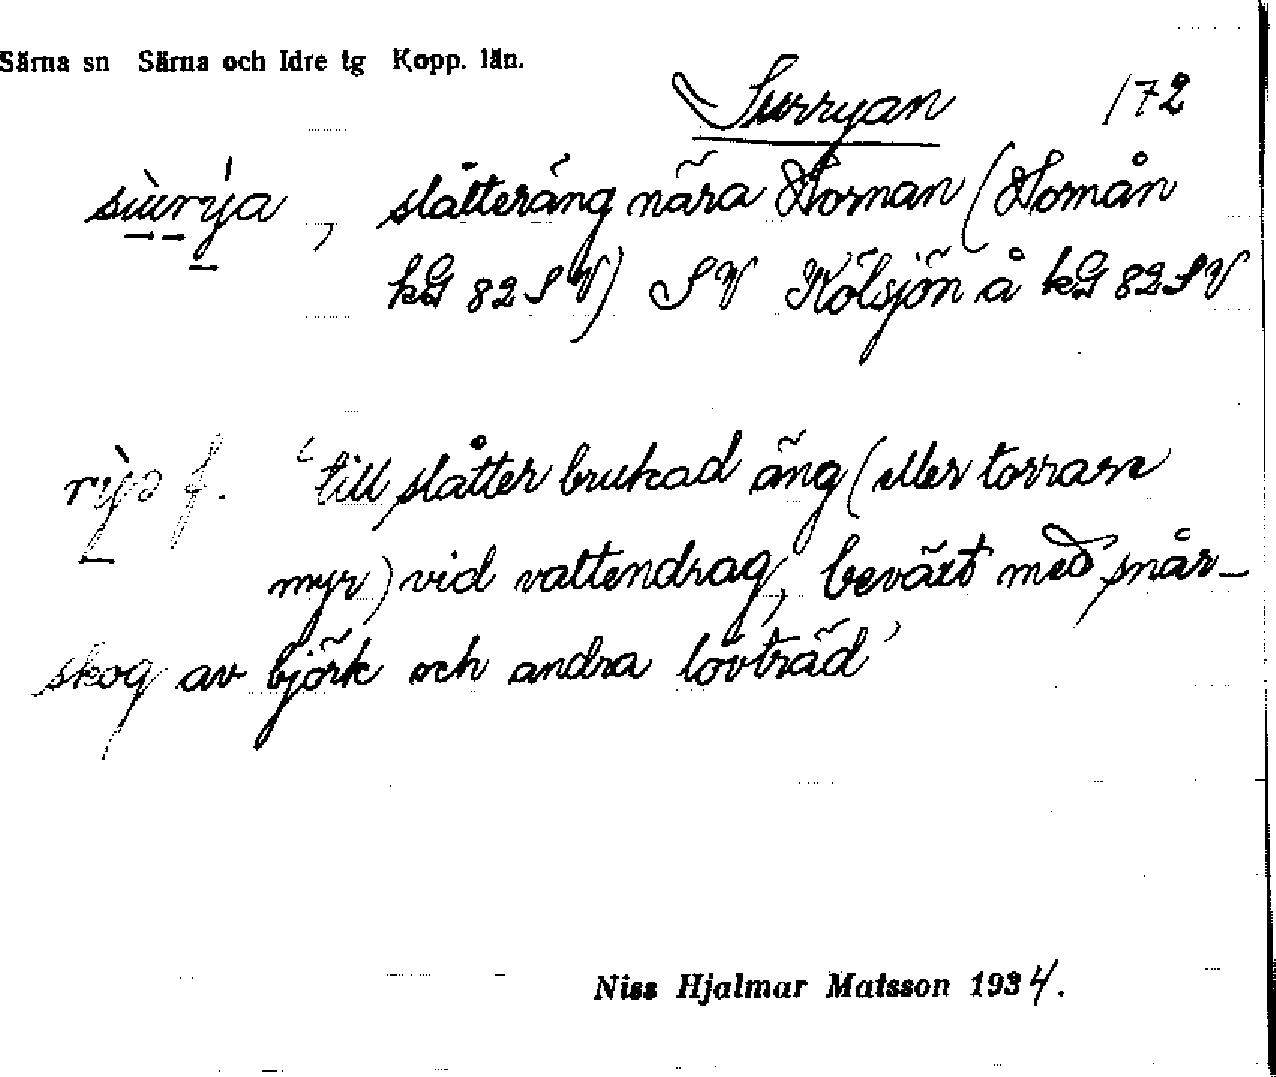 Särna sn Särna och Idre tg Kopp. län.
Surryan 172
sùrrýa, slåtteräng nära Loman (Lomån
kG 82 SV) SV Kölsjön å kG 82 SV
rỳo f. 'till slåtter brukad äng (eller torrare
myr) vid vattendrag, beväxt med snår-
skog av björk och andra lövträd'
Niss Hjalmar Matsson 1934.